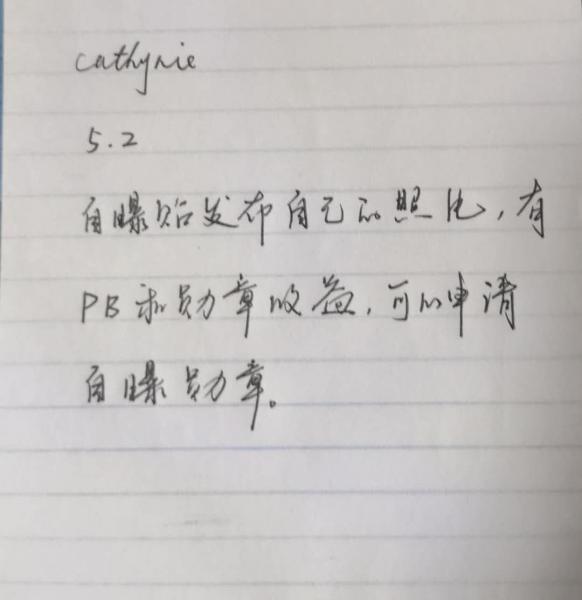 cathynie
5.2
自曝贴发布自己的照片,有
PB和勋章收益,可以申请
自曝勋章。